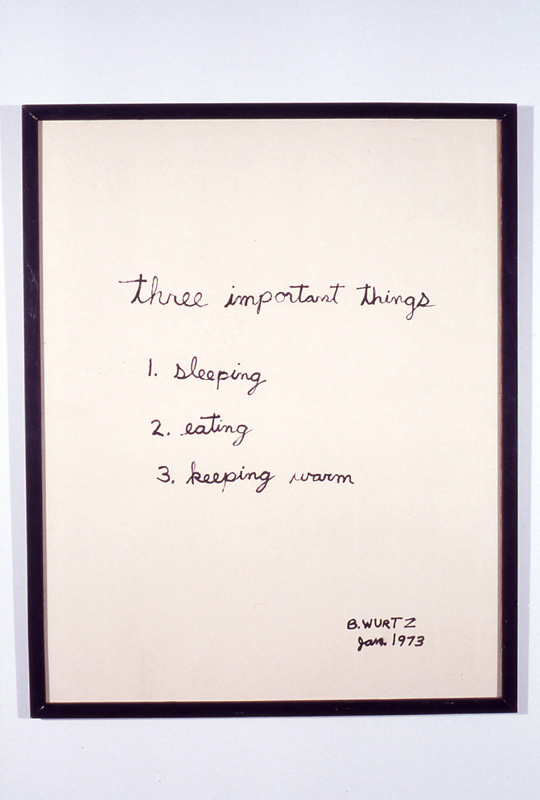 three important things
1. sleeping
2. eating
3. keeping warm
B. WURTZ
Jan. 1973